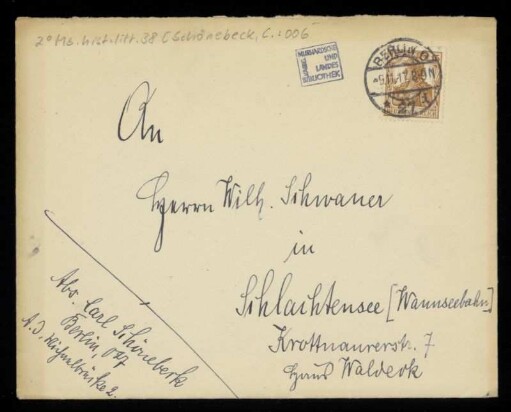 2° Ms. hist. litt. 38 [Schönebeck, C.:006
MURHARDSCHE
UND
LANDES
BIBLIOTHEK
BERLIN
An
Herrn Wilh. Schwaner
in
Schlachtensee [Wannseebahn]
Krottnaurerstr. 7
Haus Waldeck
Abs. Carl Schönebeck
Berlin,